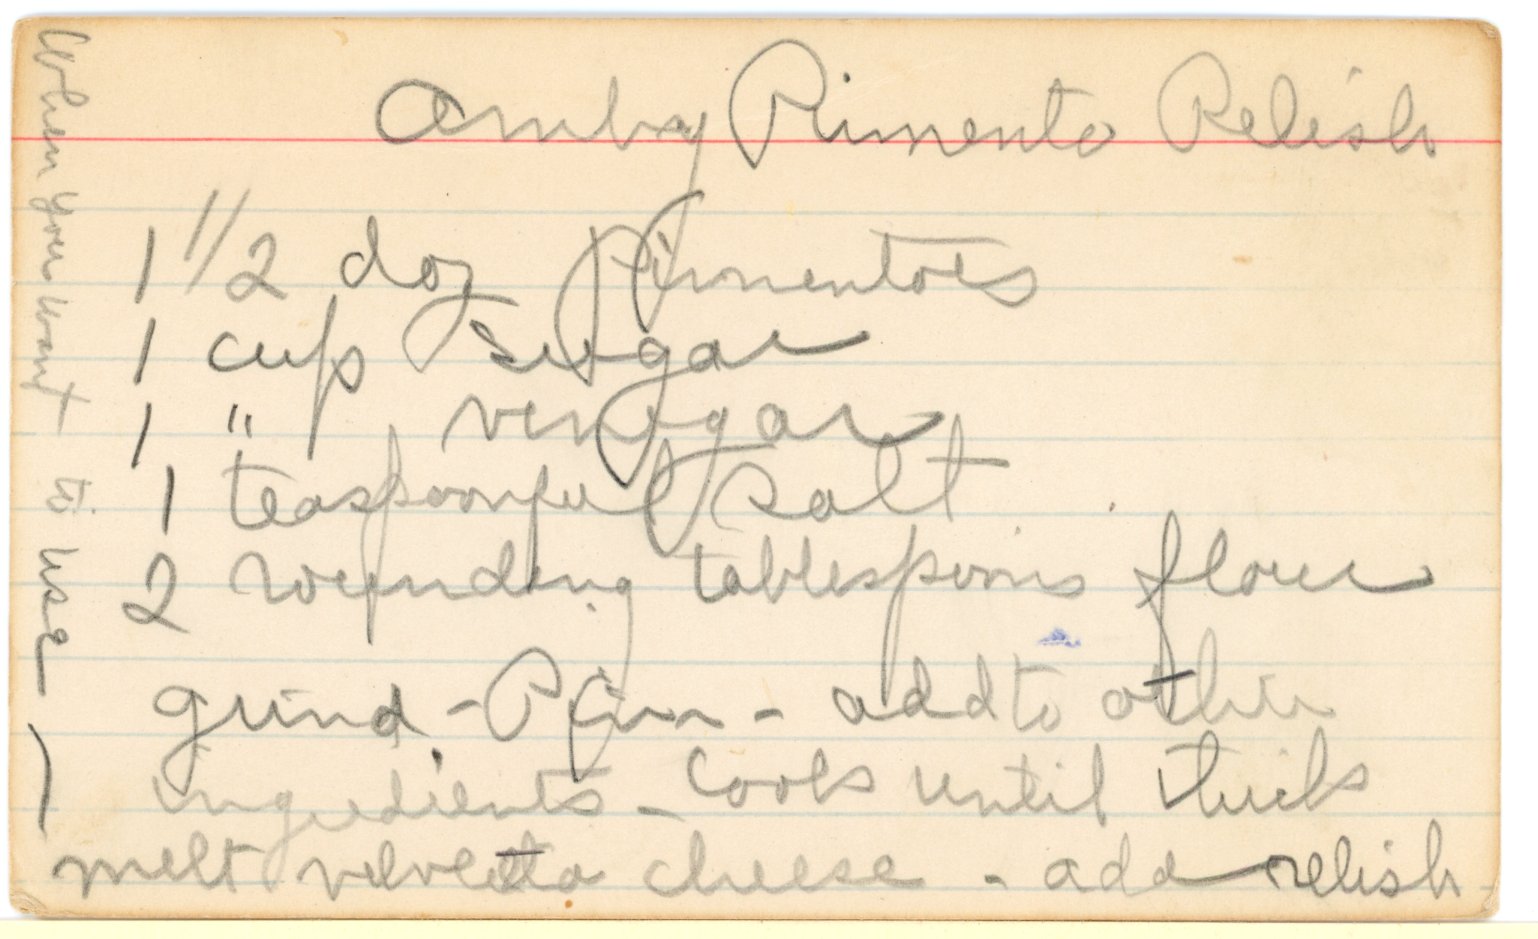 Amby Pimento Relish
1 1/2 doz Pimentoes
1 cup sugar
1 " vinegar
1 teaspoonful salt
2 rounding tablespoons flour
grind - Pim - add to other
ingredients - Cook until thick
When you want to use -
melt velveeta cheese - add relish